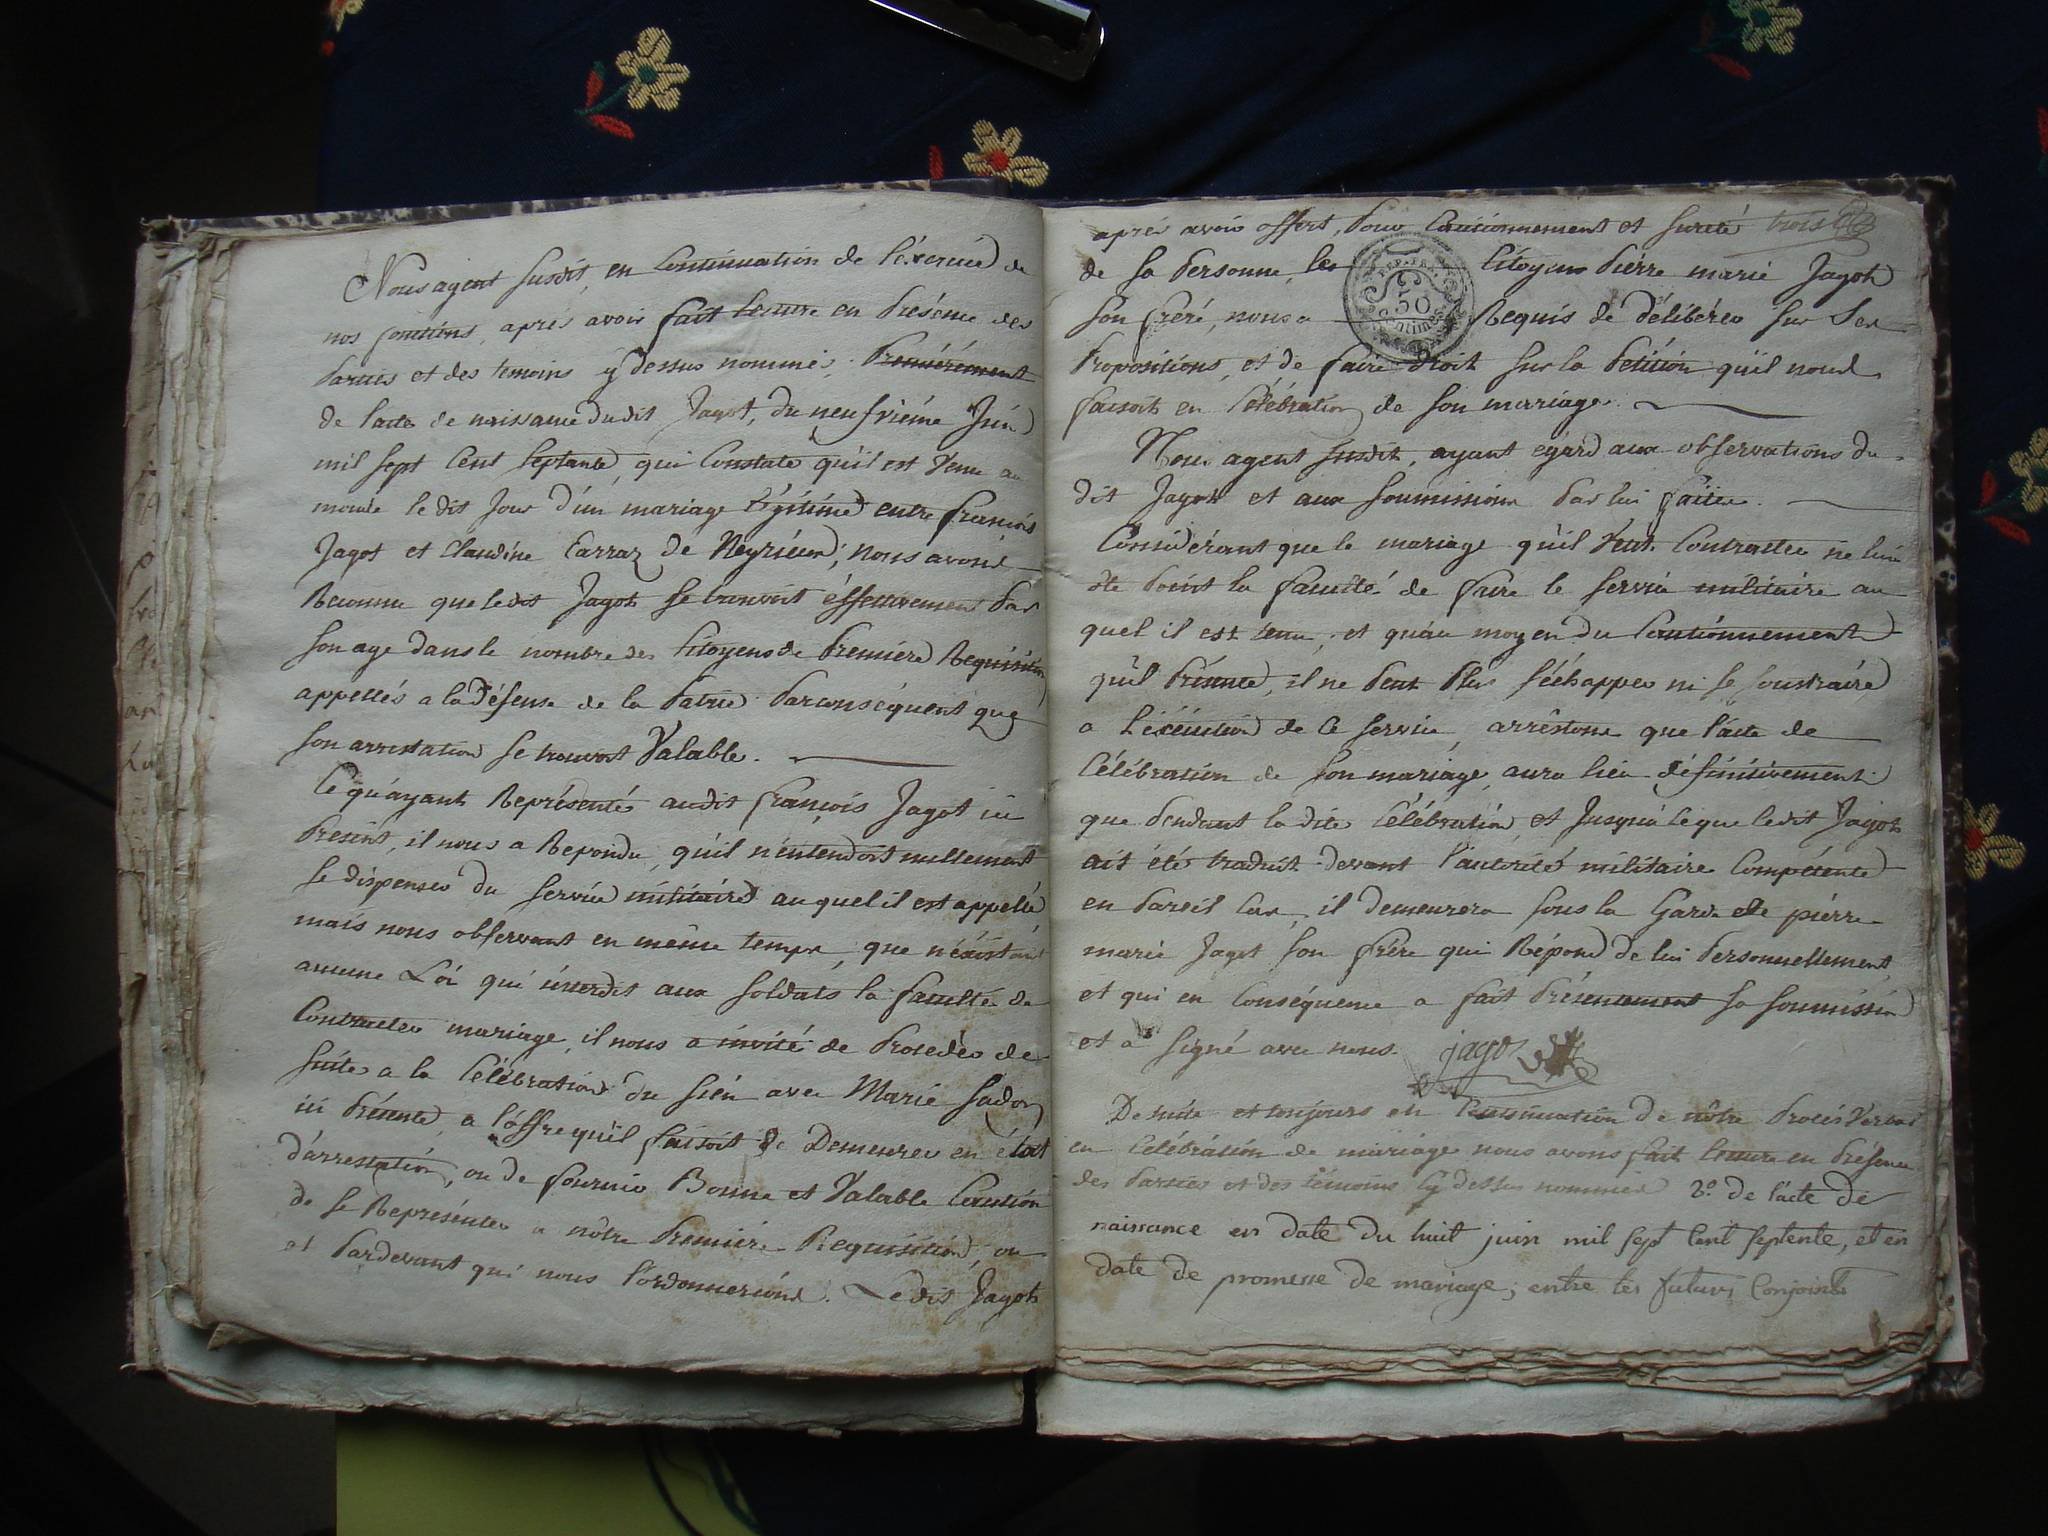 Nous agent susdit, en Continuation de l'éxercice de
nos fonctions, aprés avoir fait lecture en Présence des
Parties et des temoins cy dessus nommés, Premiérement
de l'acte de naissance dudit Jagot, du neufvieme Juin
mil sept Cent septante, qui Constate qu'il est Venu au
monde le dit Jour d'un mariage légitime entre françois
Jagot et Claudine Carraz de Neyrieux; nous avons
Reconnu que ledit Jagot se trouvoit éffectivement Par
son age dans le nombre des Citoyens de Premiére Requisition
appellés a la Défense de la Patrie Parconséquent que
son arrestation se trouvoit Valable.
Ce qu'ayant Représenté audit françois Jagot ici
Present, il nous a Repondu, qu'il n'entendoit nullement
se dispenser du service militaire auquel il est appellé
mais nous observant en même temps, que n'éxistant
aucune Loi qui interdit aux soldats la faculté de
Contracter mariage, il nous a invité de Proceder de
suite a la Célébration du sien avec Marie fadon
ici Présente, a l'offre qu'il faisoit de Demeurer en état
d'arrestation, ou de fournir Bonne et Valable Caution
de se Représenter a nôtre Premiére Requisition, ou
et Pardevant qui nous l'ordonnerions. Ledit Jagot
aprés avoir offert, Pour Cautionnement et sureté trois
de sa Personne, les Citoyens Piérre marie Jagot
son frére, nous a Requis de délibérer sur Ses
Propositions, et de faire droit sur la Petition qu'il nous
faisoit en Célébration de son mariage.
Nous agent susdit, ayant egard aux observations du
dit Jagot et aux soumissions Par lui faites.
Considérant que le mariage qu'il Veut Contracter ne lui
ôte Point la faculté de faire le service militaire au
quel il est tenu, et qu'au moyen du Cautionnement
qu'il Présente, il ne Peut Plus s'échapper ni se soustraire
a l'éxécution de Ce service, arrêtons que l'acte de
Célébration de son mariage, aura lieu définitivement
que Pendant la dite Célébration, et Jusqu'a ce que ledit Jagot
ait été traduit devant l'autorité militaire Compétente
en Pareil Cas, il demeurera sous la Garde de piérre
marie Jagot son frére qui Répond de lui Personnellement,
et qui en Conséquence a fait Présentement sa soumission
et a signé avec nous. jagot
De suite et toujours en Continuation de nôtre Procés Verbal
en Célébration de mariage nous avons fait lecture en Présence
des Parties et des témoins Cy dessus nommés 2º. de l'acte de
naissance en date du huit juin mil sept Cent septente, et en
date de promesse de mariage; entre les futurs Conjoints
REP. FRA.
50
Centimes